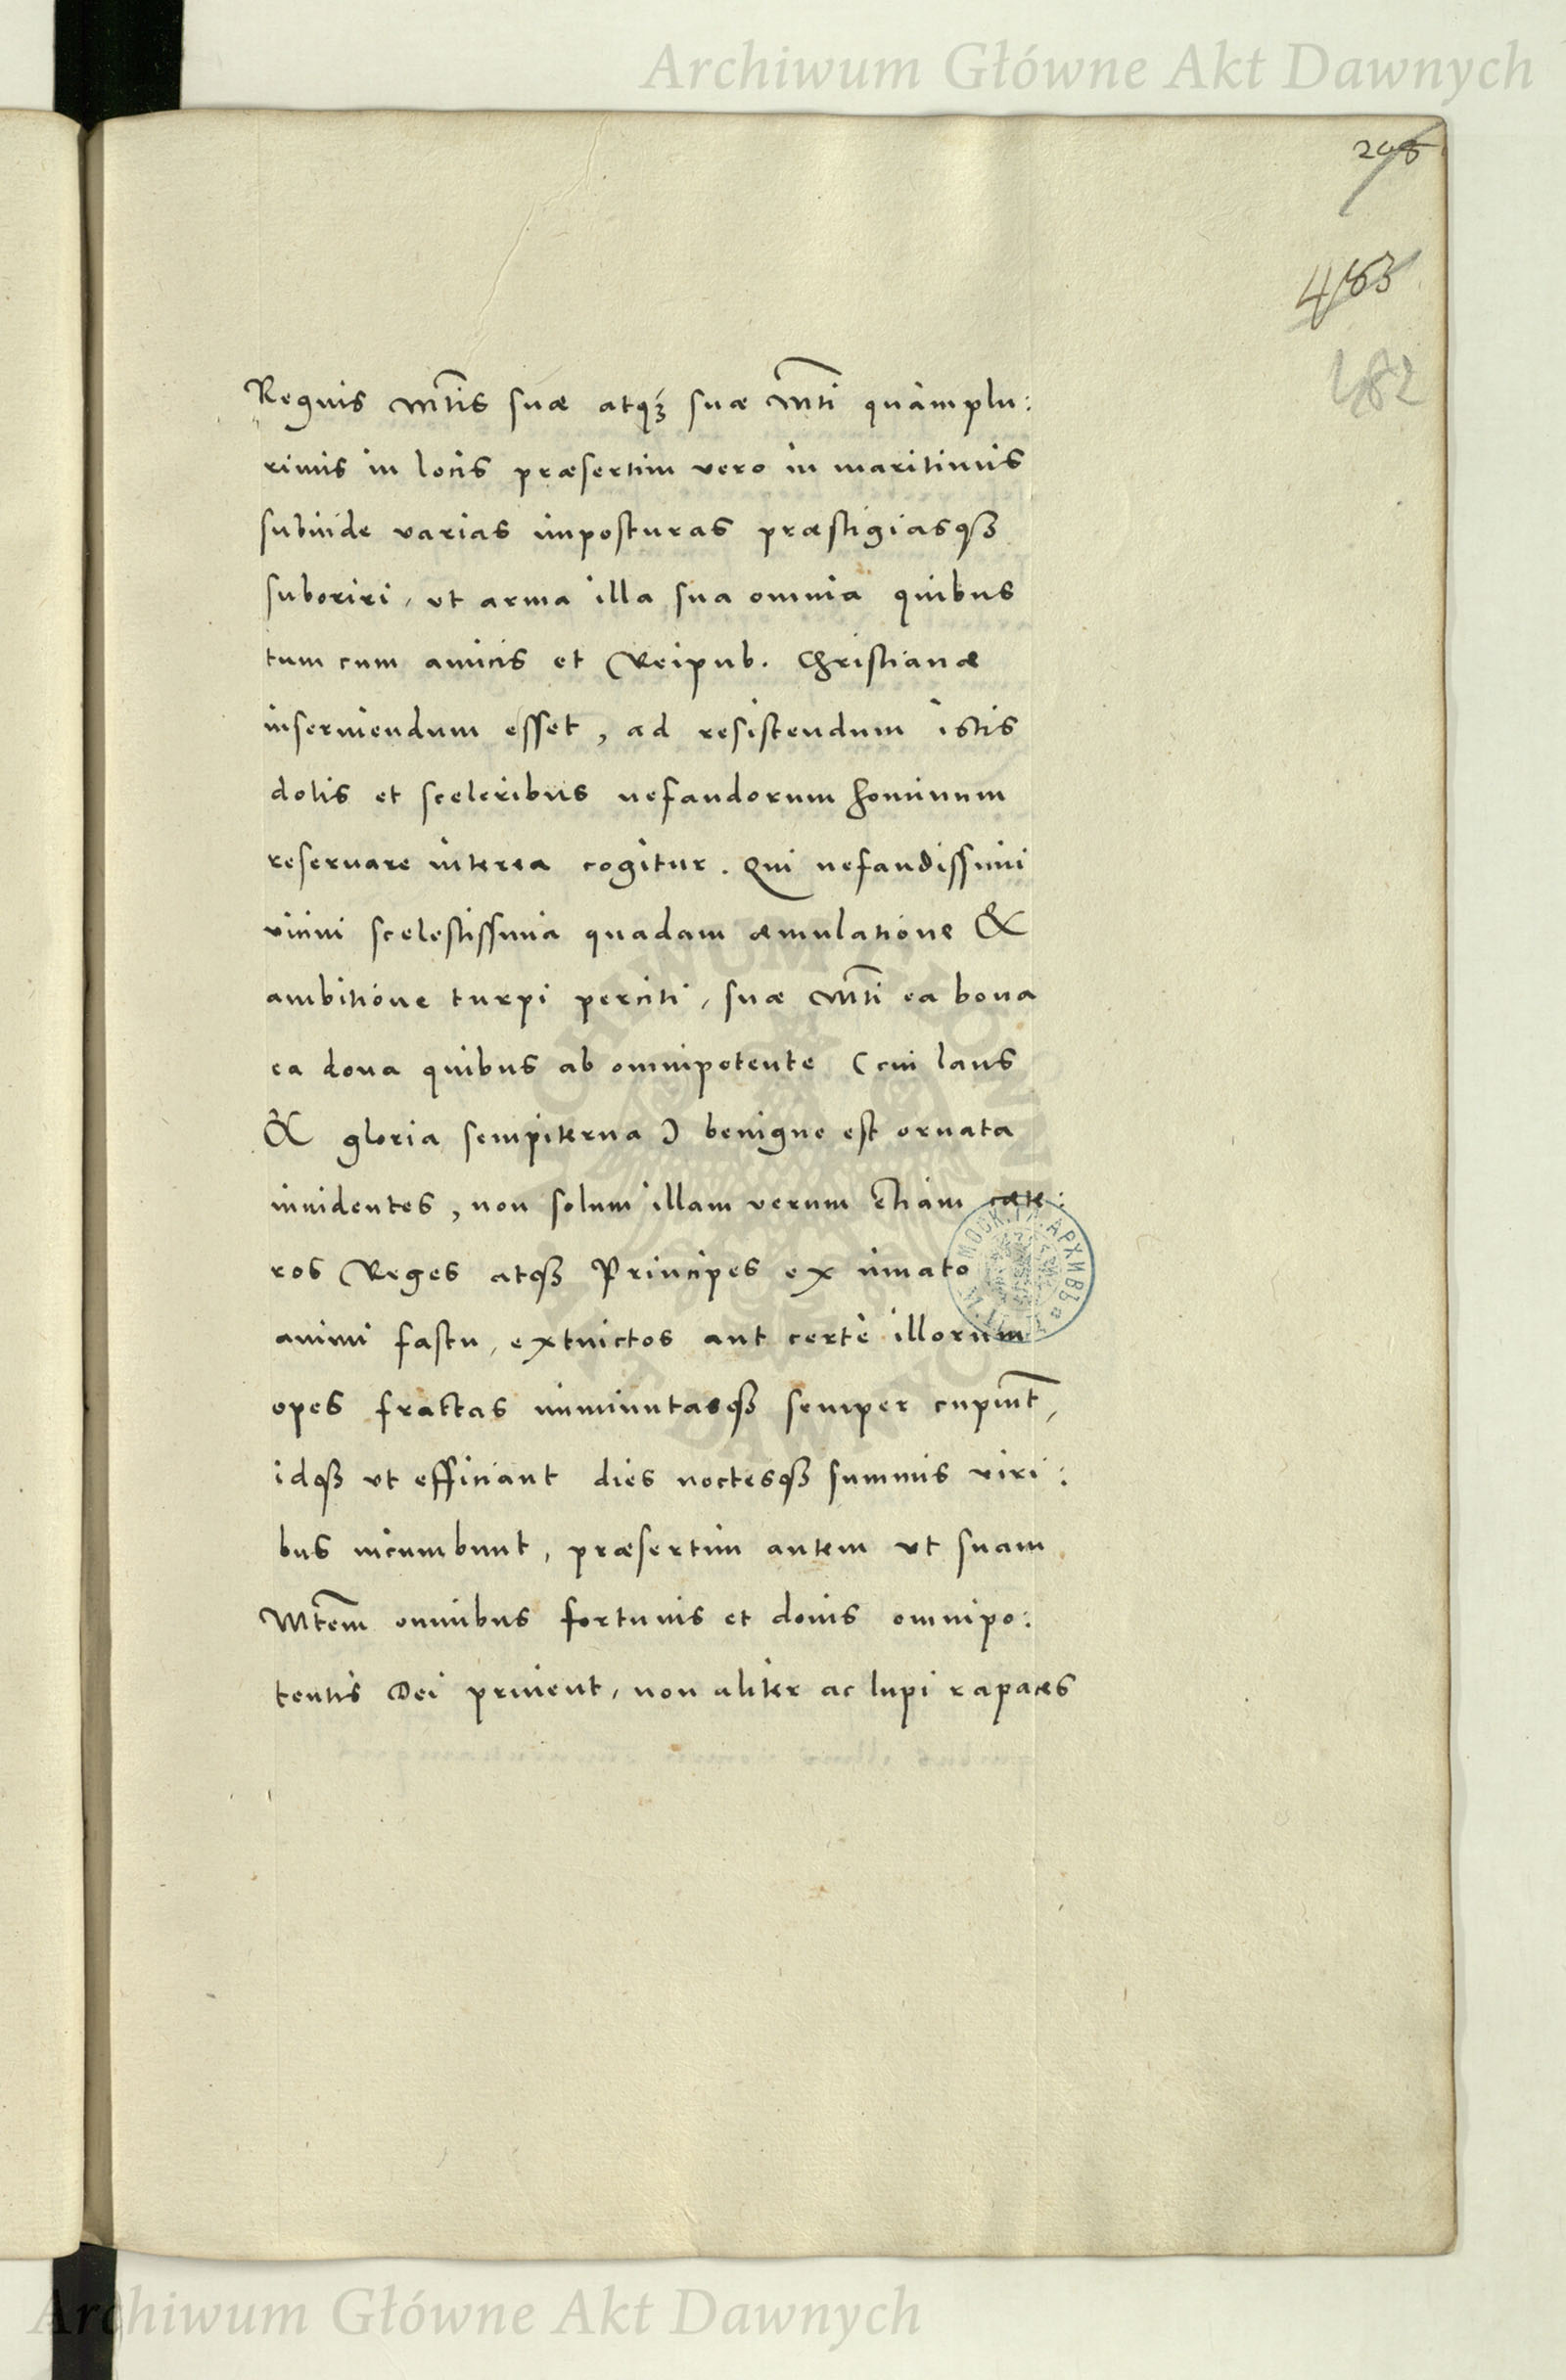 Archiwum Główne Akt Dawnych
208
463
482
Regnis Mtis suæ atq́ꝫ suæ Mti quàmplu:
rimis in locis præsertim vero in maritimis
subinde varias imposturas præstigiasqꝫ
suboriri, ut arma illa sua omnia quibus
tum cum amicis et Reipub. Christianæ
inserviendum esset, ad resistendum istis
dolis et sceleribus nefandorum hominum
reservare interea cogitur. Qui nefandissimi
vicini scelestissima quadam æmulatione &
ambitione turpi perciti, suæ Mti ea bona
ea dona quibus ab omnipotente (cui laus
& gloria sempiterna) benigne est ornata
invidentes, non solum illam verum etiam cæte:
ros Reges atqꝫ Principes ex innato
animi fastu, extinctos aut certè illorum
opes fractas imminutasqꝫ semper cupiunt,
idqꝫ ut efficiant dies noctesqꝫ summis viri:
bus incumbunt, præsertim autem ut suam
Mtem omnibus fortunis et donis omnipo:
tentis Dei privent, non aliter ac lupi rapaces
Archiwum Główne Akt Dawnych